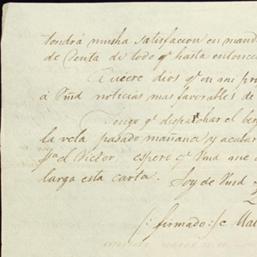 tendrá mucha satisfaccion en mand
de Cuenta de todo q.e hasta entonce
Quiere dios q.e en mi pr
á Vmd noticias mas favorables de
Tengo q.e despachar el ber
la vela pasado mañana y
el Victor, espero q.e Vmd que
larga esta carta. Soy de Vmd
firmado